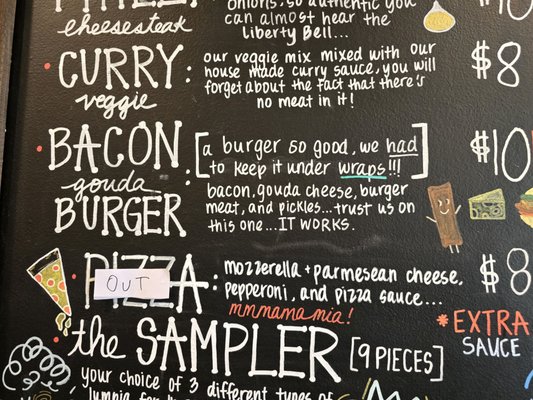 onions, so authentic you
cheesesteak
can almost hear the
Liberty Bell...
$10
CURRY
veggie
:
our veggie mix mixed with our
house made curry sauce, you will
forget about the fact that there's
no meat in it!
$8
BACON
gouda
BURGER
:
[a burger so good, we had
to keep it under wraps!!!]
bacon, gouda cheese, burger
meat, and pickles... trust us on
this one... IT WORKS.
$10
PIZZA:
OUT
mozzerella + parmesean cheese,
pepperoni, and pizza sauce...
mmmama mia!
$8
*EXTRA
SAUCE
the SAMPLER [9 PIECES]
your choice of 3 different types of
lumpia for